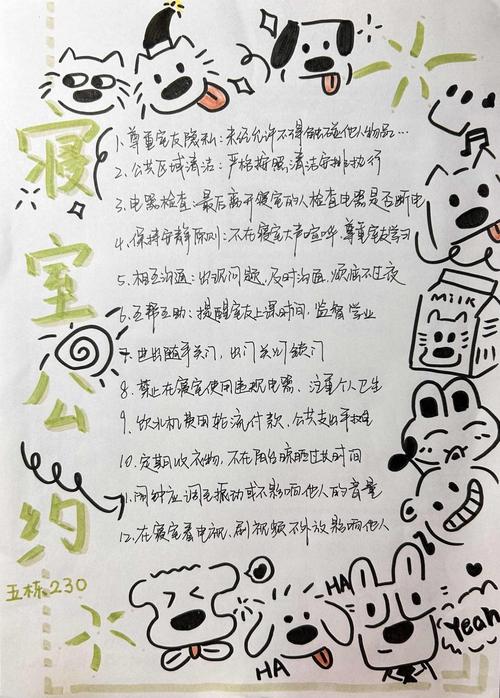 寝室公约
1.尊重室友隐私:未经允许不得触碰他人物品...
2.公共区域清洁:严格按照清洁安排执行
3.电器检查:最后离开寝室的人检查电器是否断电
4.保持安静原则:不在寝室大声喧哗,尊重室友学习
5.相互沟通:出现问题,及时沟通,烦恼不过夜
6.互帮互助:提醒室友上课时间,监督学业
7.进出随手关门,出门关灯锁门
8.禁止在寝室使用违规电器、注重个人卫生
9.饮水机费用轮流付款,公共支出平摊
10.定期收衣物,不在阳台晾晒过长时间
11.闹钟应调至振动或不影响他人的音量
12.在寝室看电视、刷视频不外放影响他人
五栋.230
MILK
HA
HA
Yeah